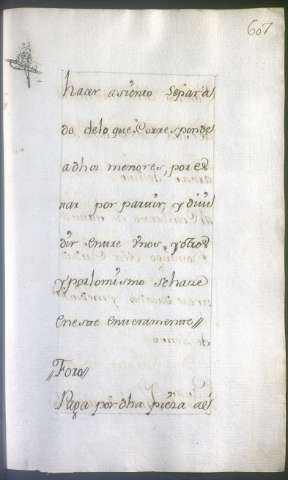 607
hacer asiento separa
do delo que Corresponde
adhos menores, por es
tar por partir, y divi
dir entre Unos, y otros
y por lo mismo se hace
en este enteramente//
//Foro//
Paga por dha pieza al